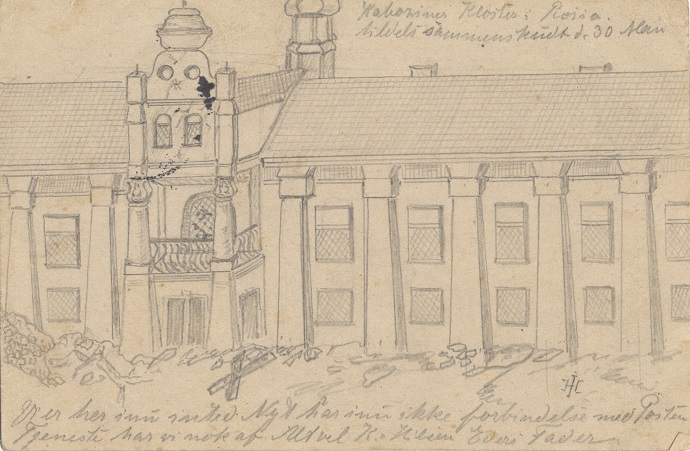 Kaboziner Kloster i Rosia.
tildels sammenskudt d. 30 Mai
HC
Vi er her inu inted Nyt har inu ikke forbindelse med Posten
Tjeneste har vi nok af Alt vel K. Hilsen Eders Fader